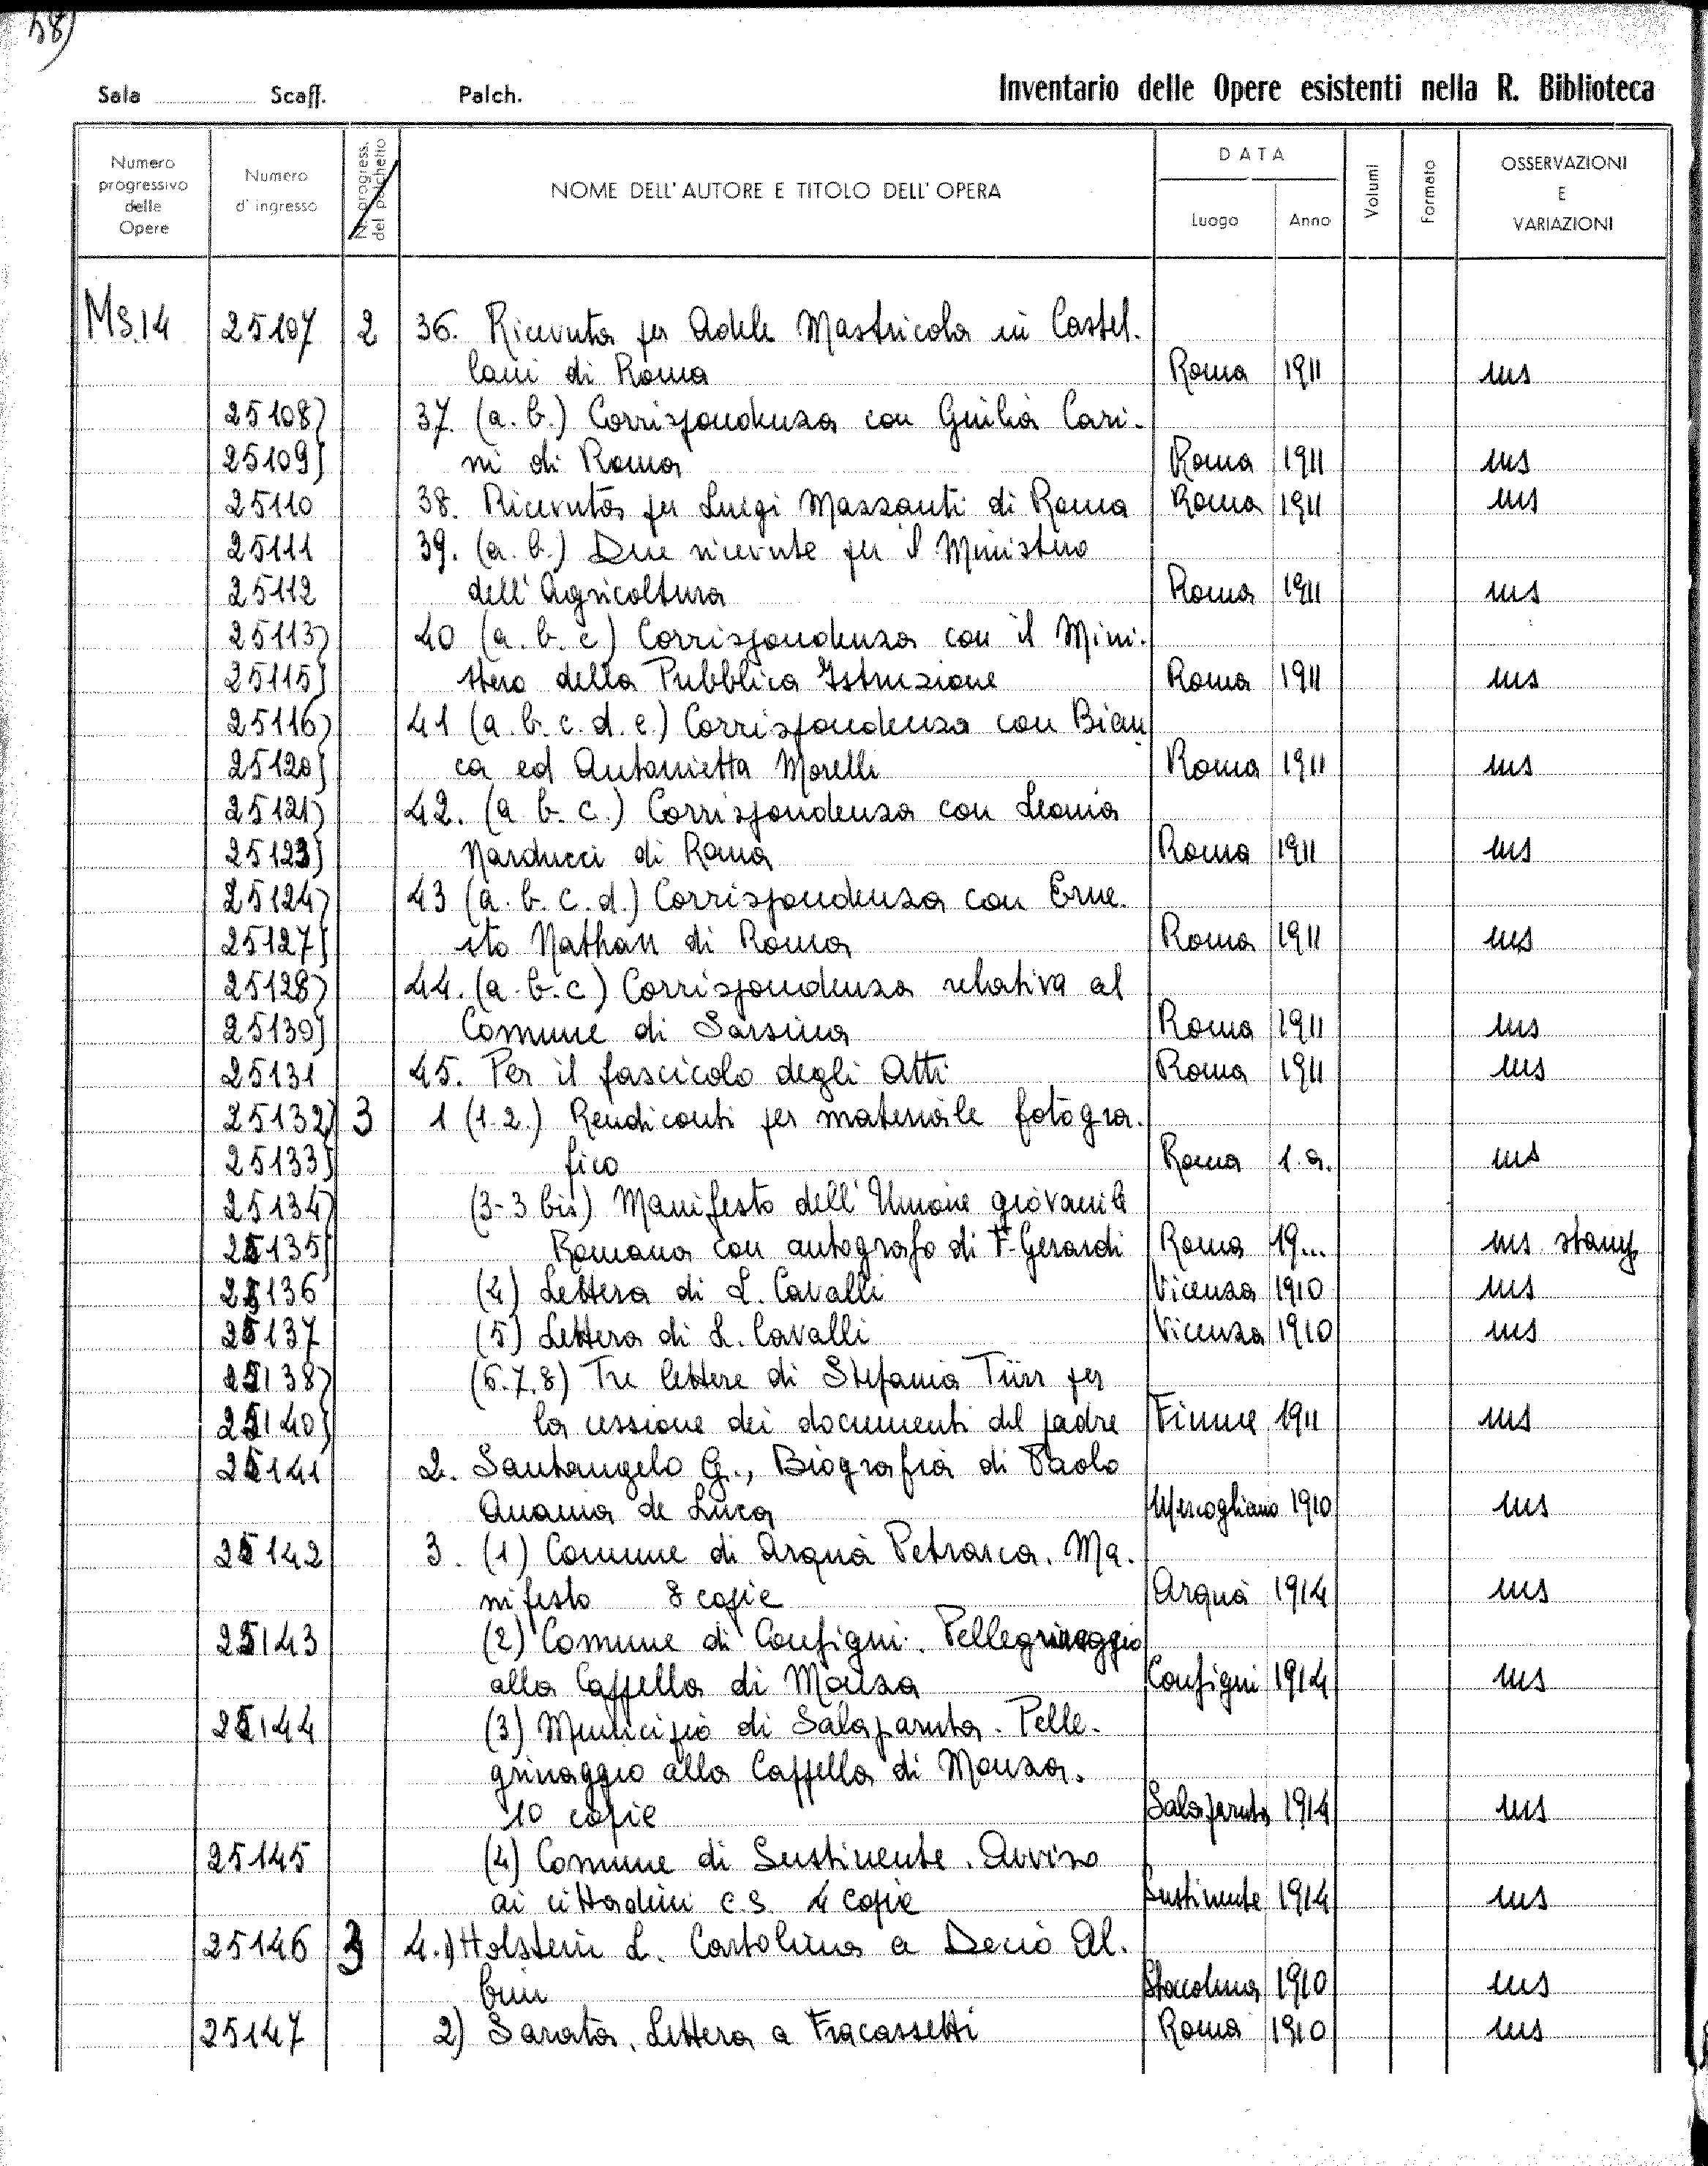 58)
Sala Scaff. Palch. Inventario delle Opere esistenti nella R. Biblioteca
Numero progressivo delle Opere
Numero d'ingresso
N. progress. del palchetto
NOME DELL'AUTORE E TITOLO DELL'OPERA
DATA
Luogo Anno
Volumi
Formato
OSSERVAZIONI E VARIAZIONI
Ms.14 25107 2 36. Ricevuta per Adele Mastricola in Castel-
lani di Roma Roma 1911 ms
25108) 37. (a. b.) Corrispondenza con Giulia Cari-
25109) ni di Roma Roma 1911 ms
25110 38. Ricevuta per Luigi Mazzanti di Roma Roma 1911 ms
25111 39. (a. b.) Due ricevute per il Ministero
25112 dell'Agricoltura Roma 1911 ms
25113) 40 (a. b. c) Corrispondenza con il Mini-
25115) stero della Pubblica Istruzione Roma 1911 ms
25116) 41 (a. b. c. d. e.) Corrispondenza con Bian
25120) ca ed Antonietta Morelli Roma 1911 ms
25121) 42. (a b. c.) Corrispondenza con Leonia
25123) Narducci di Roma Roma 1911 ms
25124) 43 (a. b. c. d.) Corrispondenza con Erne-
25127) sto Nathan di Roma Roma 1911 ms
25128) 44. (a. b. c) Corrispondenza relativa al
25130) Comune di Sarsina Roma 1911 ms
25131 45. Per il fascicolo degli Atti Roma 1911 ms
25132) 3 1 (1.2.) Rendiconti per materiale fotogra-
25133) fico Roma s.a. ms
25134) (3-3 bis) Manifesto dell'Unione giovanile
25135) Romana con autografo di F. Gerardi Roma 19... ms stamp
25136 (4) Lettera di L. Cavalli Vicenza 1910 ms
25137 (5) Lettera di L. Cavalli Vicenza 1910 ms
25138) (6.7.8) Tre lettere di Stefania Türr per
25140) la cessione dei documenti del padre Fiume 1911 ms
25141 2. Santangelo G., Biografia di Paolo
Anania de Luca Mercogliano 1910 ms
25142 3. (1) Comune di Arquà Petrarca. Ma-
nifesto 8 copie Arquà 1914 ms
25143 (2) Comune di Configni. Pellegrinaggio
alla Cappella di Monza Configni 1914 ms
25144 (3) Municipio di Salaparuta. Pelle-
grinaggio alla Cappella di Monza.
10 copie Salaparuta 1914 ms
25145 (4) Comune di Sustinente. Avviso
ai cittadini c.s. 4 copie Sustinente 1914 ms
25146 3 4.1) Holstein L. Cartolina a Decio Al-
bini Stoccolma 1910 ms
25147 2) Sarata, Lettera a Fracassetti Roma 1910 ms